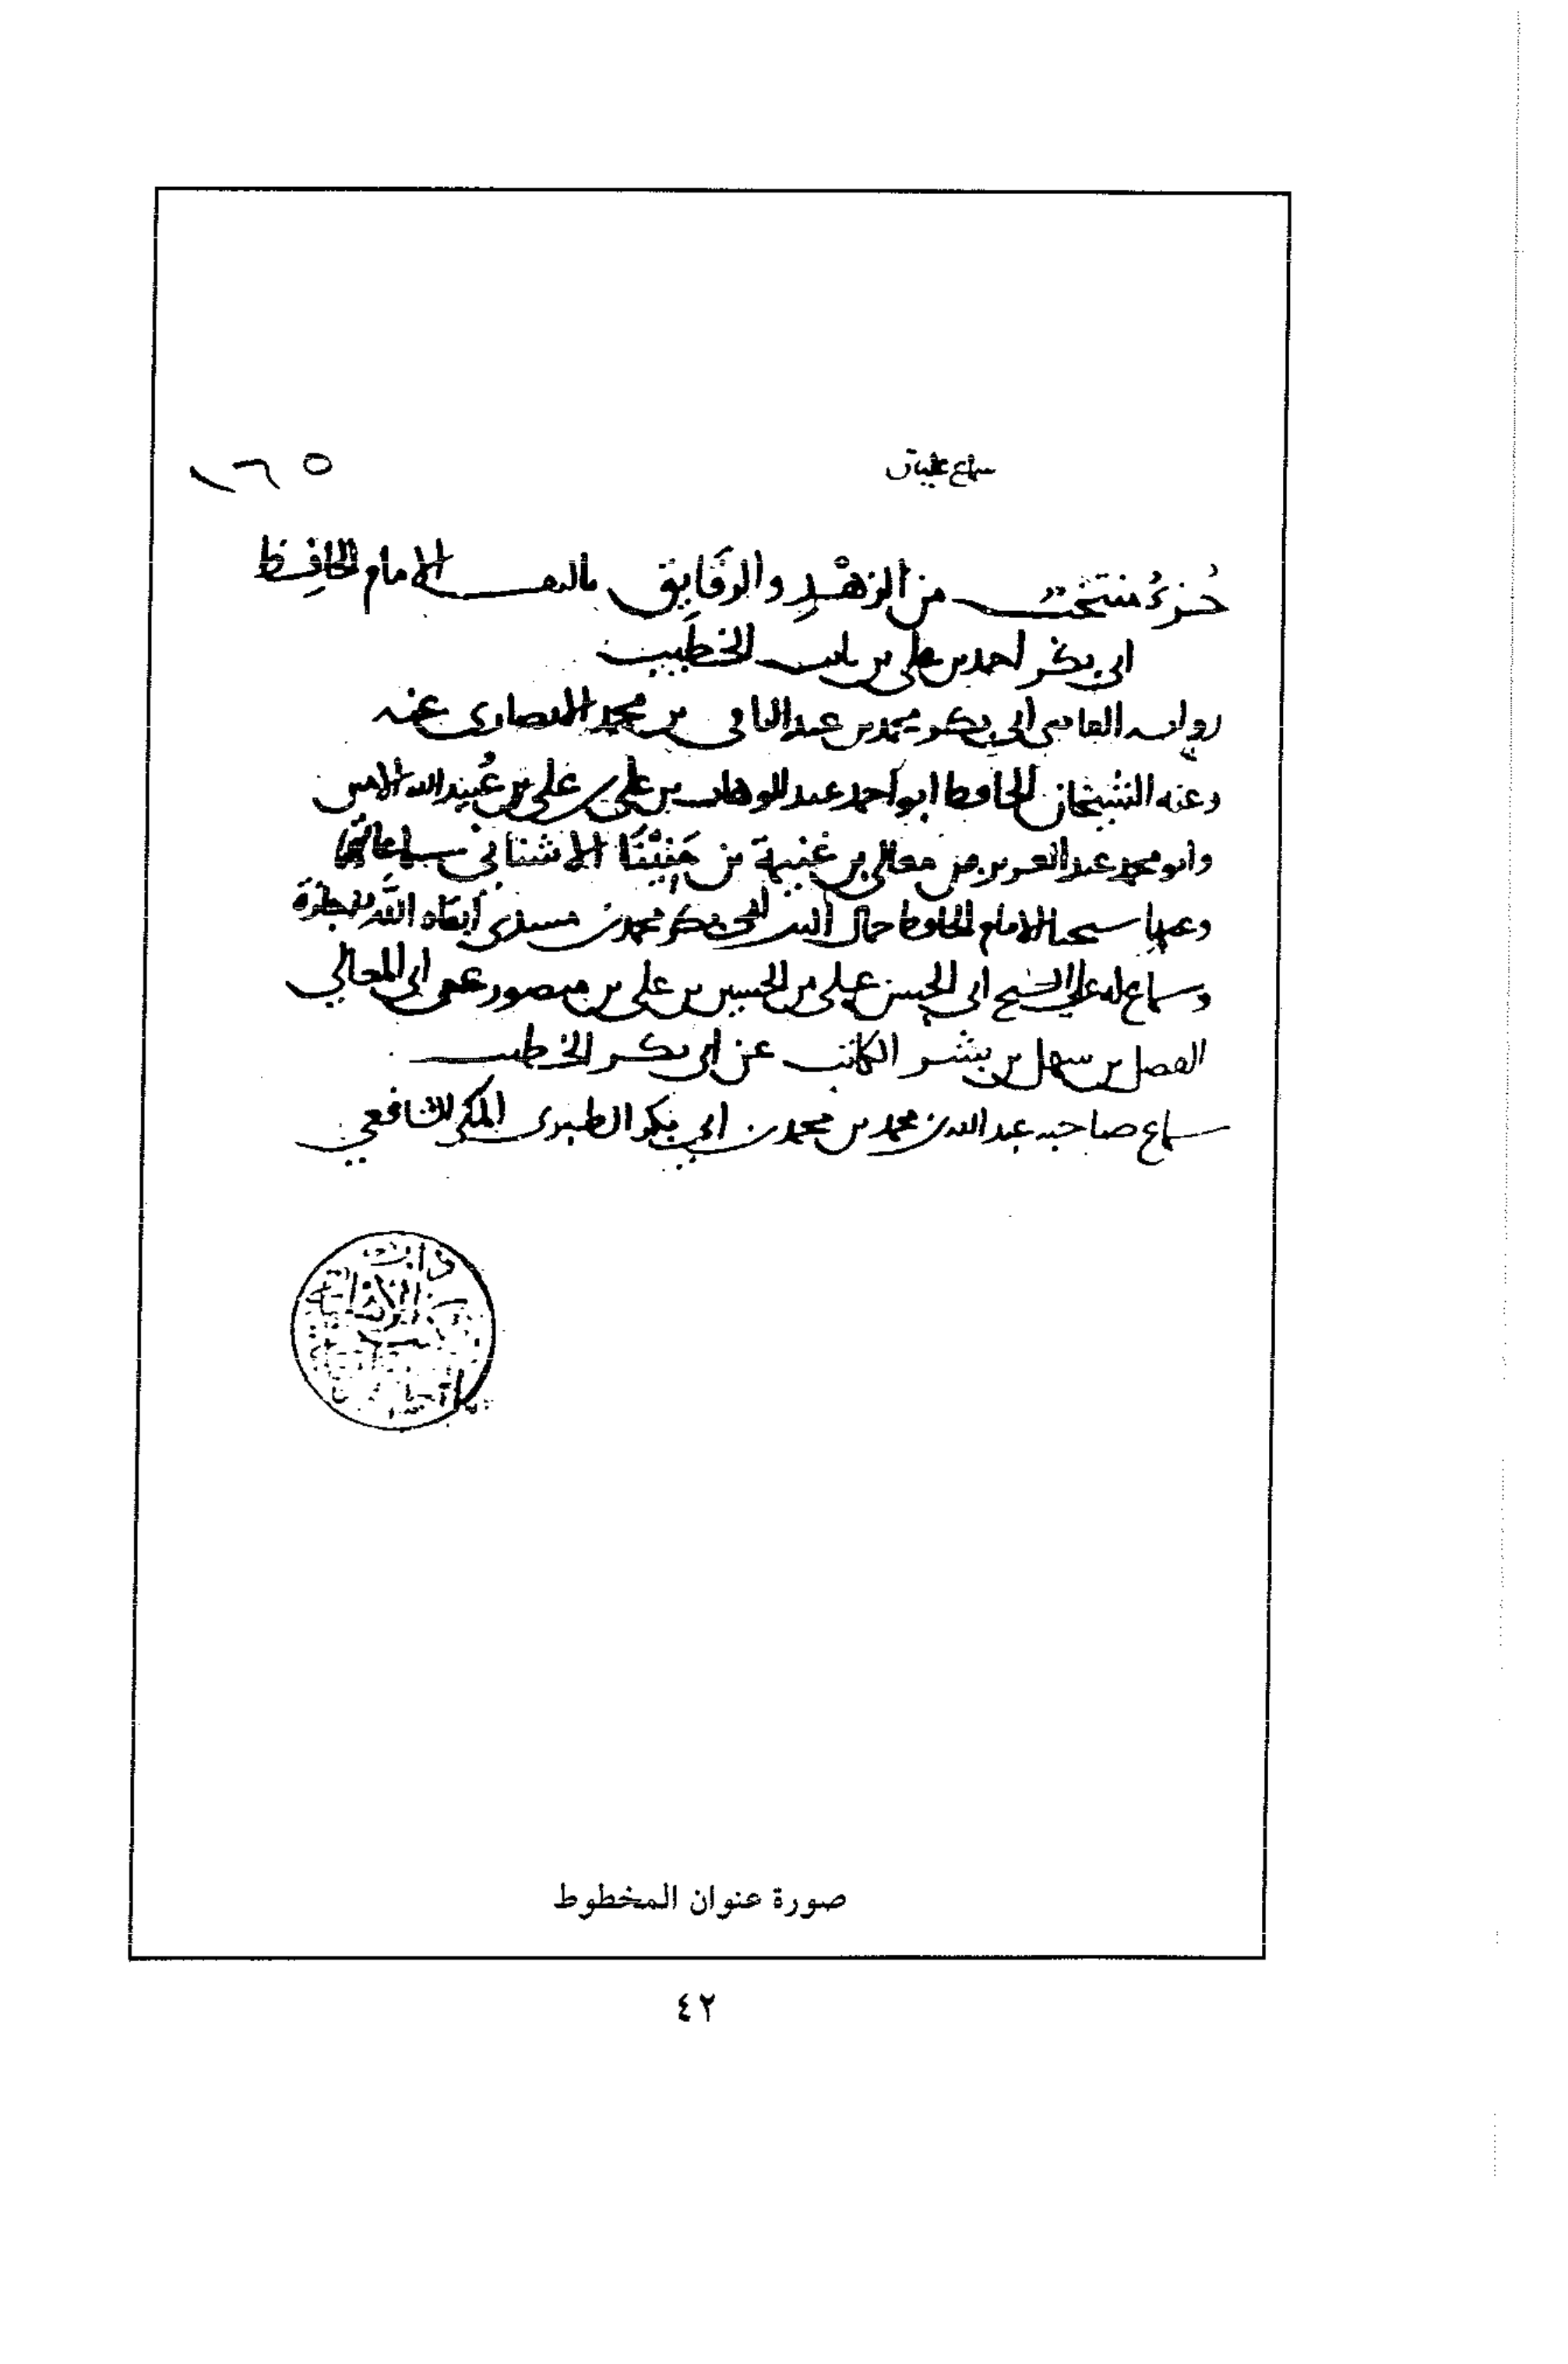 سماع
١٦٥
جُزءُ منتخب من الزهْدِ والرقايق تاليف الامام الحافظ
ابي بكر احمد بن علي بن ثابت الخطيب
رواية القاضي ابي بكر محمد بن عبد الباقي بن محمد الانصاري عنه
وعنه الشيخان الحافظ ابو احمد عبد الوهاب بن علي بن علي بن عُبيد الله الامين
وابو محمد عبد العزيز بن معالي بن غنيمة بن مَنِيْنَا الاشناني سماعا
وعنهما شيخنا الامام الحافظ جمال الدين ابي بكر محمد بن مسدي ابقاه الله
وسماعه على الشيخ ابي الحسن علي بن الحسين بن علي بن منصور عن ابي المعالي
الفضل بن سهل بن بشر الكاتب عن ابي بكر الخطيب
سماع صاحبه عبد الله بن محمد بن محمد بن ابي بكر الطبري المكي الشافعي
صورة عنوان المخطوط
٤٢